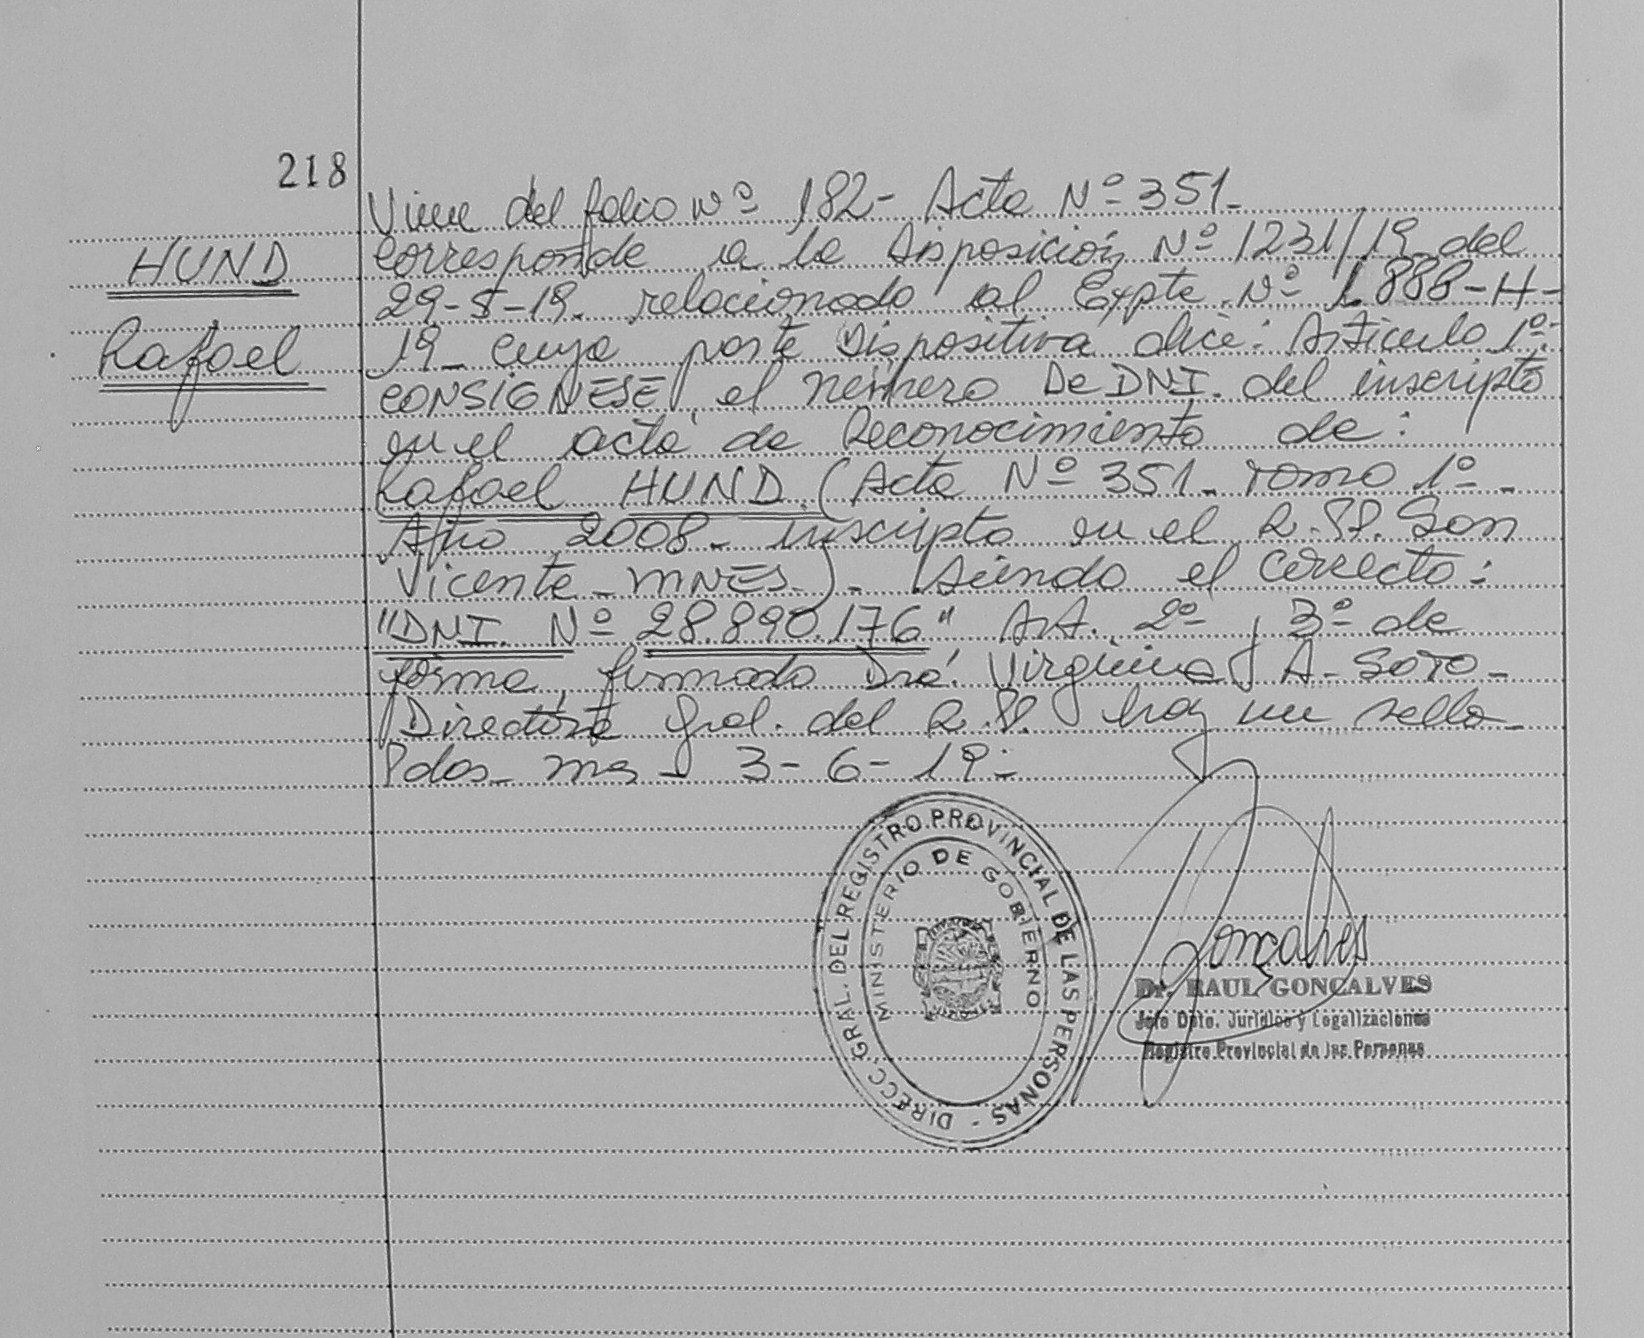 218
HUND
Rafael
Viene del folio Nº 182- Acta Nº 351-
Corresponde a la Disposición Nº 1231/19 del
29-5-19- relacionado al Expte. Nº 1888-H-
19- cuya parte Dispositiva dice: Artículo 1º:
CONSIGNESE, el número De DNI. del inscripto
en el acta de Reconocimiento de:
Rafael HUND (Acta Nº 351- Tomo 1º-
Año 2008- inscripto en el R.PP. San
Vicente- MNES.)- Siendo el correcto:
"DNI. Nº 28.890.176" Art. 2º y 3º de
forma, firmado Dra. Virginia A- SOTO-
Directora Gral. del R.PP. hay un sello-
Pdas- ms- 3-6-19-
DIRECC. GRAL. DEL REGISTRO PROVINCIAL DE LAS PERSONAS -
MINISTERIO DE GOBIERNO
Gonçalves
Dr. RAUL GONÇALVES
Jefe Dpto. Jurídico y Legalizaciones
Registro Provincial de las Personas